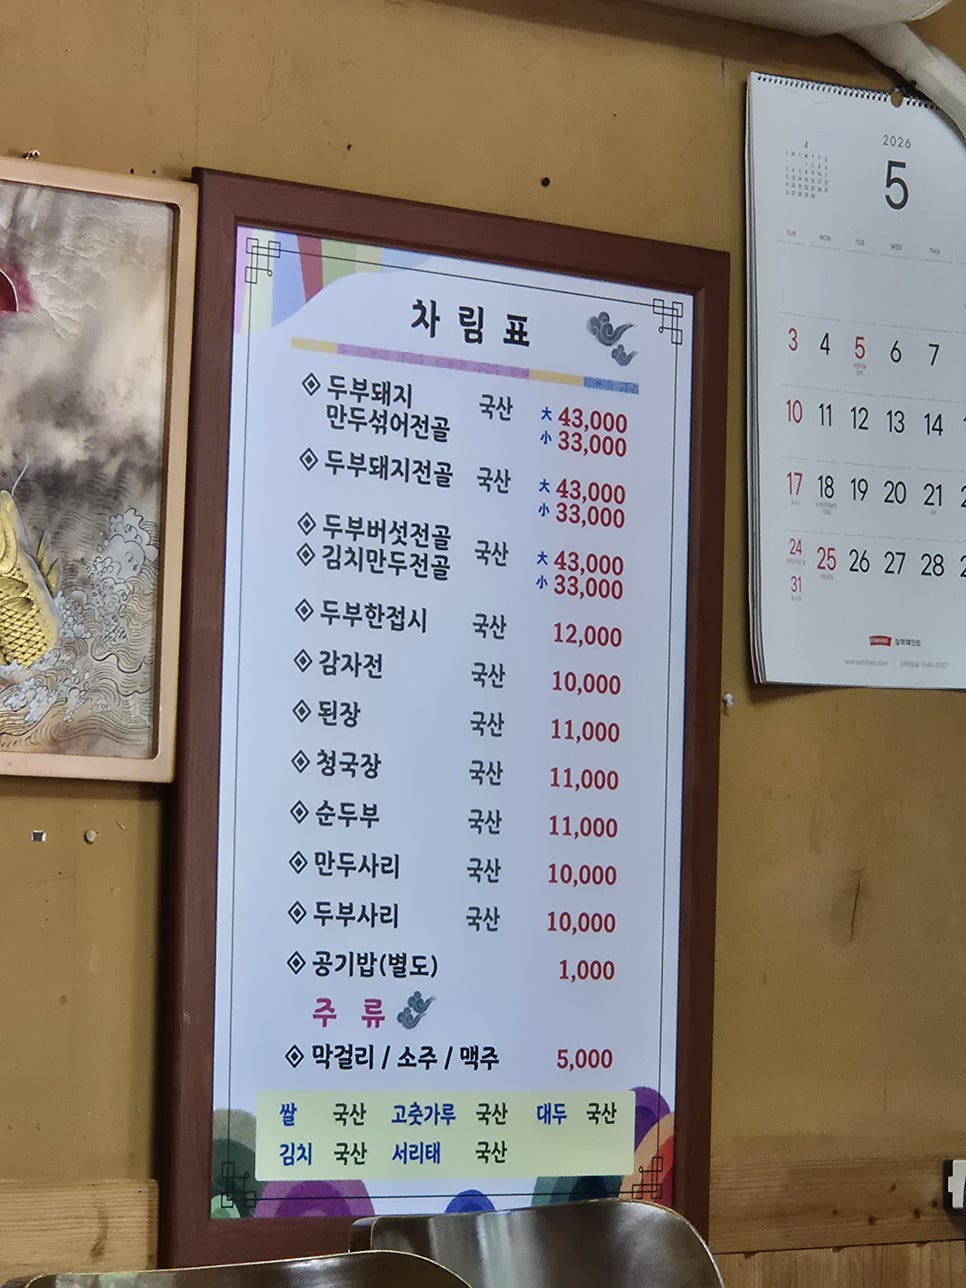 차림표
두부돼지
만두섞어전골 국산 大 43,000
小 33,000
두부돼지전골 국산 大 43,000
小 33,000
두부버섯전골
김치만두전골 국산 大 43,000
小 33,000
두부한접시 국산 12,000
감자전 국산 10,000
된장 국산 11,000
청국장 국산 11,000
순두부 국산 11,000
만두사리 국산 10,000
두부사리 국산 10,000
공기밥(별도) 1,000
주류
막걸리 / 소주 / 맥주 5,000
쌀 국산 고춧가루 국산 대두 국산
김치 국산 서리태 국산
4
2026
5
SUN MON TUE WED THU
3 4 5 6 7
10 11 12 13 14
17 18 19 20 21
24 25 26 27 28
31
삼화페인트